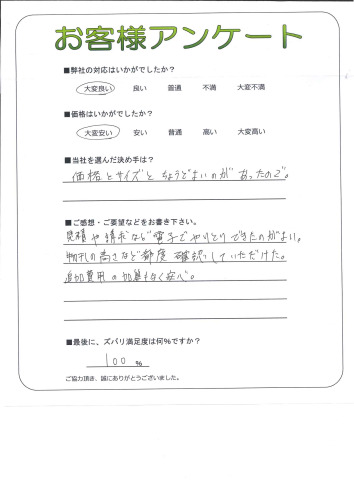 お客様アンケート
■弊社の対応はいかがでしたか？
大変良い 良い 普通 不満 大変不満
■価格はいかがでしたか？
大変安い 安い 普通 高い 大変高い
■当社を選んだ決め手は？
価格とサイズとちょうどよいのがあったので。
■ご感想・ご要望などをお書き下さい。
見積や請求など電子でやりとりできたのがよい。
物干の高さなど都度確認していただけた。
追加費用の加算もなく安心。
■最後に、ズバリ満足度は何%ですか？
100 %
ご協力頂き、誠にありがとうございました。